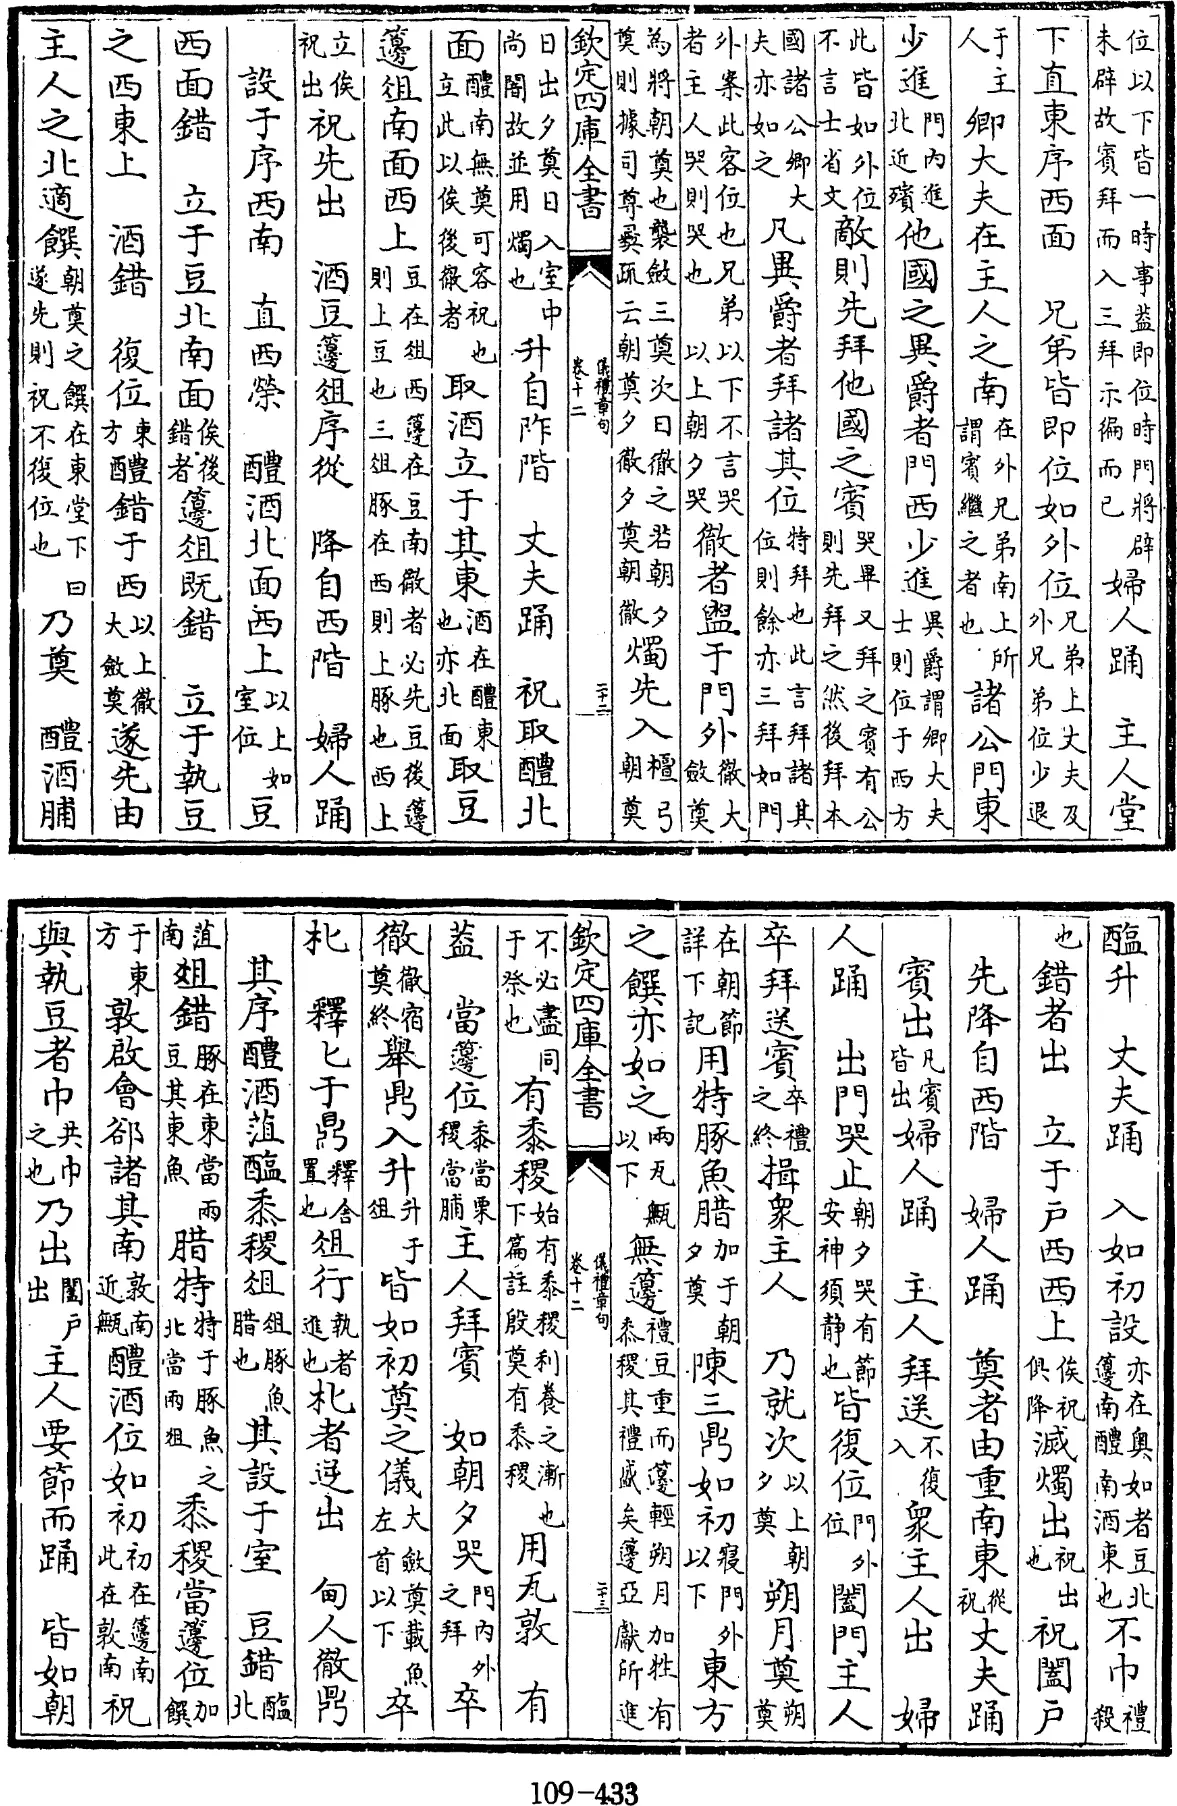 位以下皆一時事蓋即位時門將辟未辟故賓拜而入三拜示徧而已婦人踊　主人堂
下直東序西面　兄弟皆即位如外位兄弟上丈夫及外兄弟位少退
于主人　卿大夫在主人之南在外兄弟南上所謂賓繼之者也諸公門東
少進門內進北近殯他國之異爵者門西少進異爵謂卿大夫士則位于西方
此皆如外位不言士省文敵則先拜他國之賓哭畢又拜之賓有公則先拜之然後拜本
國諸公卿大夫亦如之凡異爵者拜諸其位特拜也此言拜諸其位則餘亦三拜如門
外案此客位也兄弟以下不言哭者主人哭則哭也　以上朝夕哭徹者盥于門外徹大斂奠
為將朝奠也襲斂三奠次日徹之若朝夕奠則據司尊彝疏云朝奠夕徹夕奠朝徹燭先入檀弓朝奠
欽定四庫全書　儀禮章句　卷十二　二十二
日出夕奠日入室中尚闇故並用燭也升自阼階　丈夫踊　祝取醴北
面醴南無奠可容祝也立此以俟後徹者取酒立于其東酒在醴東也亦北面取豆
籩俎南面西上豆在俎西籩在豆南徹者必先豆後籩則上豆也三俎豚在西則上豚也西上
立俟祝出祝先出　酒豆籩俎序從　降自西階　婦人踊
設于序西南　直西榮　醴酒北面西上以上如室位豆
西面錯　立于豆北南面俟後錯者籩俎既錯　立于執豆
之西東上　酒錯　復位東方醴錯于西以上徹大斂奠遂先由
主人之北適饌朝奠之饌在東堂下曰遂先則祝不復位也乃奠　醴酒脯
醢升　丈夫踊　入如初設亦在奧如者豆北籩南醴南酒東也不巾禮殺
也錯者出　立于戶西西上俟祝俱降滅燭出祝出也祝闔戶
先降自西階　婦人踊　奠者由重南東從祝丈夫踊
賓出凡賓皆出婦人踊　主人拜送不復入眾主人出　婦
人踊　出門哭止朝夕哭有節安神須靜也皆復位門外位闔門主人
卒拜送賓卒禮之終揖眾主人　乃就次以上朝夕奠朔月奠朔奠
在朝節詳下記用特豚魚腊加于朝夕奠陳三鼎如初寢門外以下東方
之饌亦如之兩瓦甒以下無籩禮豆重而籩輕朔月加牲有黍稷其禮盛矣籩亞獻所進
欽定四庫全書　儀禮章句　卷十二　二十三
不必盡同于祭也有黍稷始有黍稷利養之漸也下篇註殷奠有黍稷用瓦敦　有
蓋　當籩位黍當栗稷當脯主人拜賓　如朝夕哭門內外之拜卒
徹徹宿奠終舉鼎入升升于俎皆如初奠之儀大斂奠載魚左首以下卒
朼　釋匕于鼎釋舍置也俎行執者進也朼者逆出　甸人徹鼎
其序醴酒菹醢黍稷俎俎豚魚腊也其設于室　豆錯醢北
菹南俎錯豚在東當兩豆其東魚腊特特于豚魚之北當兩俎黍稷當籩位加饌
于東方敦啟會郤諸其南敦南近甒醴酒位如初初在籩南此在敦南祝
與執豆者巾共巾之也乃出闔戶出主人要節而踊　皆如朝
109-433